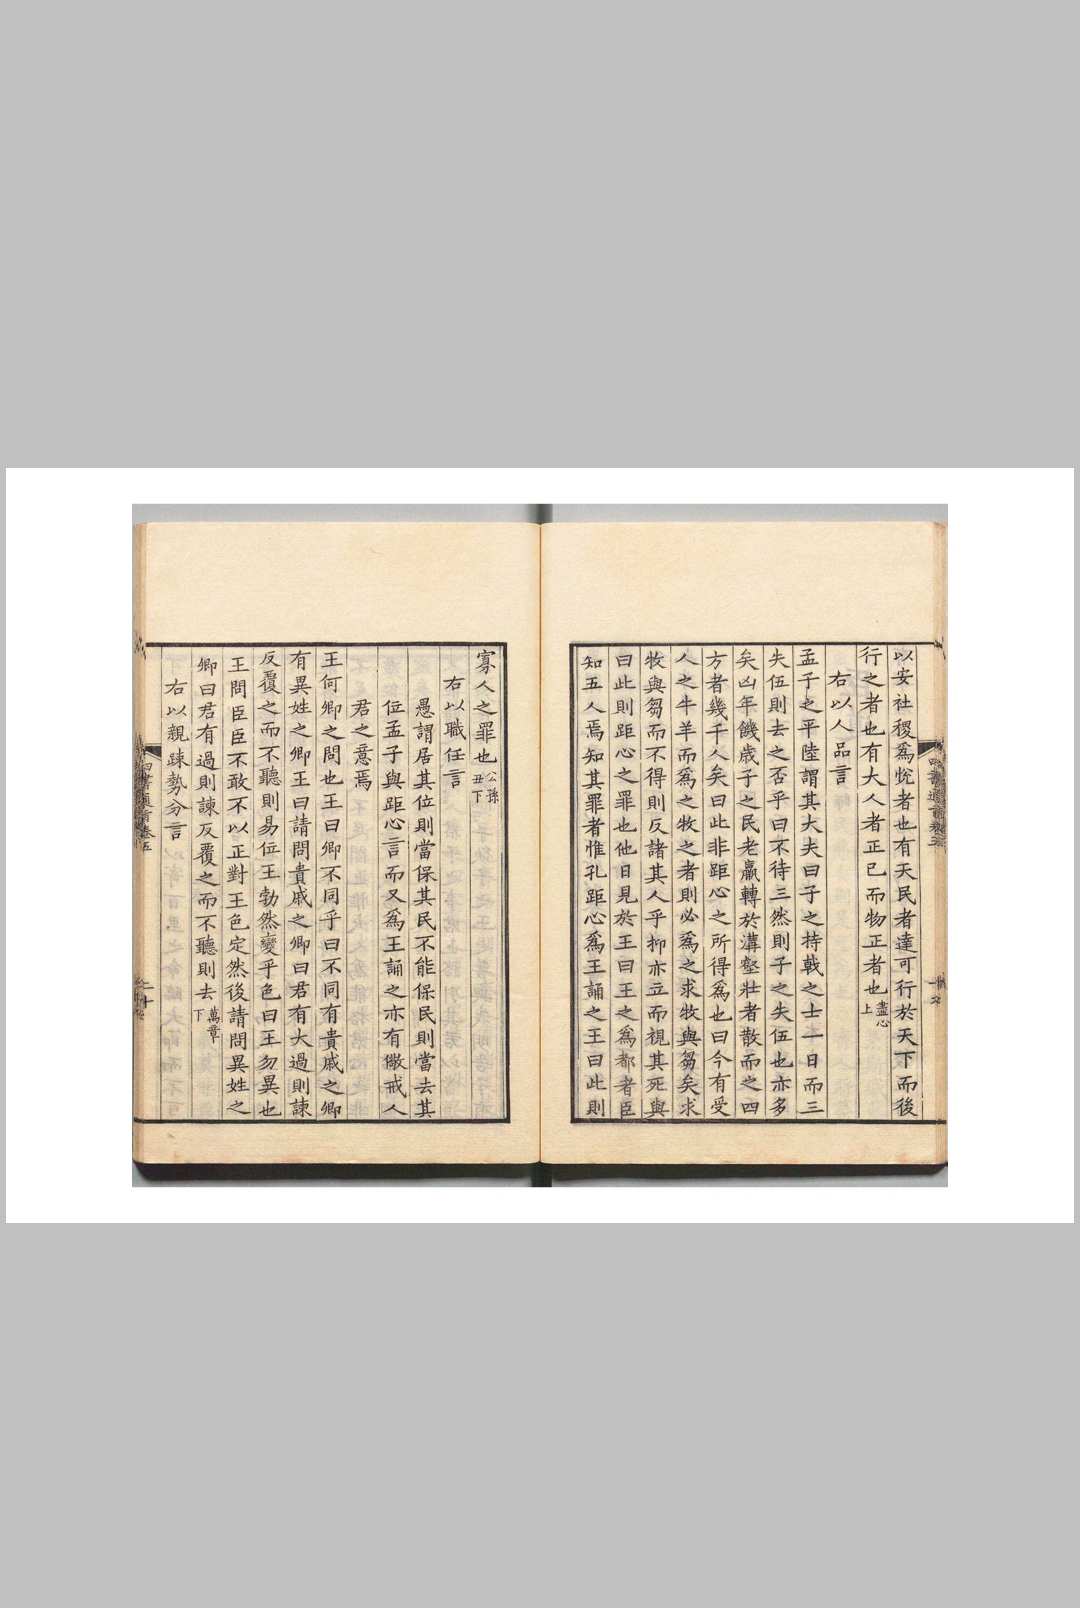 以安社稷爲悅者也有天民者達可行於天下而後
行之者也有大人者正已而物正者也盡心
上
右以人品言
孟子之平陸謂其大夫曰子之持戟之士一日而三
失伍則去之否乎曰不待三然則子之失伍也亦多
矣凶年饑歳子之民老羸轉於溝壑壯者散而之四
方者幾千人矣曰此非距心之所得爲也曰今有受
人之牛羊而爲之牧之者則必爲之求牧與芻矣求
牧與芻而不得則反諸其人乎抑亦立而視其死與
曰此則距心之罪也他日見於王曰王之爲都者臣
知五人焉知其罪者惟孔距心爲王誦之王曰此則
寡人之罪也公孫
丑下
右以職任言
愚謂居其位則當保其民不能保民則當去其
位孟子與距心言而又爲王誦之亦有儆戒人
君之意焉
王何卿之問也王曰卿不同乎曰不同有貴戚之卿
有異姓之卿王曰請問貴戚之卿曰君有大過則諫
反覆之而不聽則易位王勃然變乎色曰王勿異也
王問臣臣不敢不以正對王色定然後請問異姓之
卿曰君有過則諫反覆之而不聽則去萬章
下
右以親踈勢分言